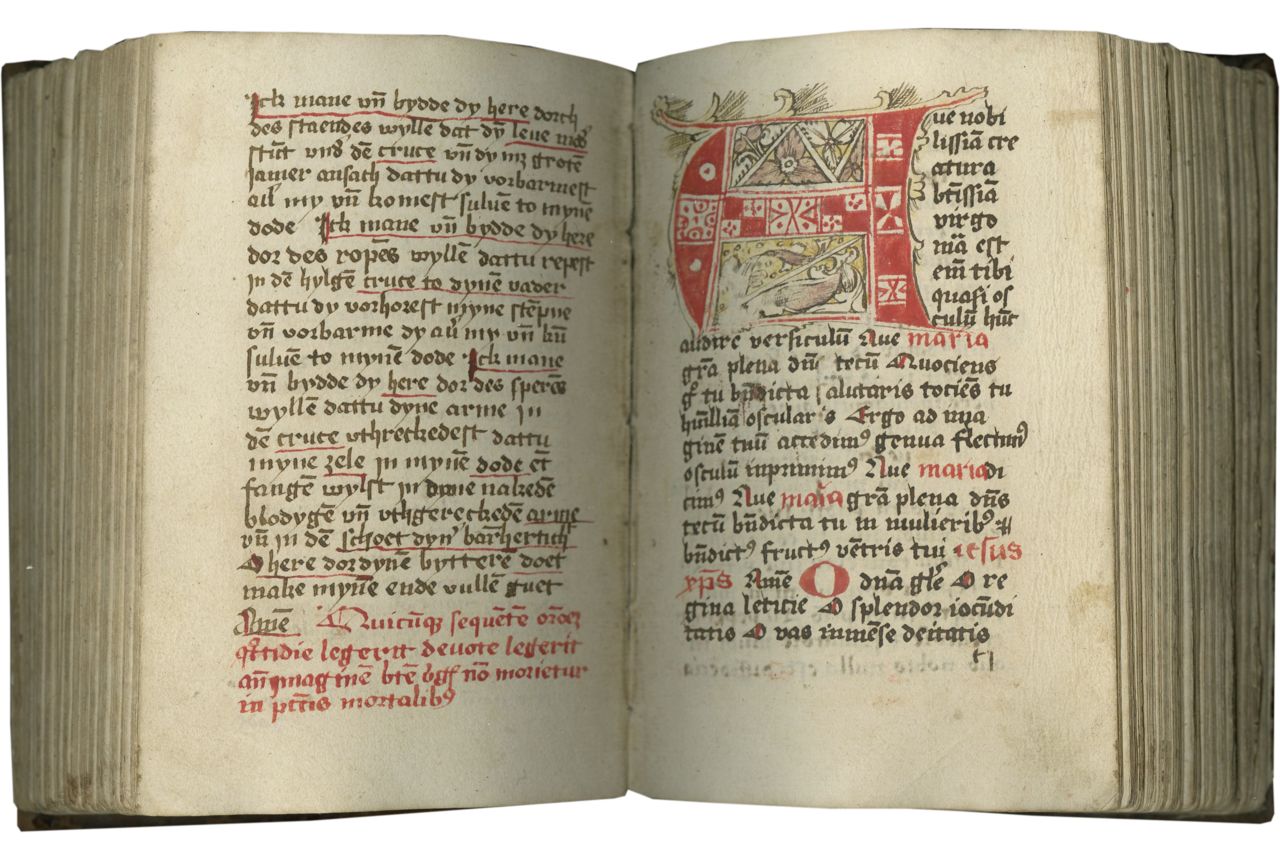 Ick mane vn̄ bydde dy here dorch
des staendes wylle dat dyn̄ leue
stūt vnd̓ dē cruce vn̄ dy mȝ grotē
Jamer ansach dattu dy vorbarmest
auͤ my vn̄ komest suluē to mynē
dode Ick mane vn̄ bydde dy here
dor des ropēs wyllē dattu repest
in dē hylgē cruce to dynē vader
dattu dy vorhorest myne stēpne
vn̄ vorbarme dy auͤ my vn̄ kū
suluē to mynē dode Ick mane
vn̄ bydde dy here dor des sperēs
wyllē dattu dyne arme in
dē cruce vthreckedest dattu
myne zele in mynē dode ēt
fangē wylst in dyne nakedē
blodygē vn̄ vthgereckedē arme
vn̄ in dē schoet dyn̓ barh̄ertich
O here dor dynē bytterē doet
make mynē ende vullē guet
Amē Quicūqȝ sequētē oronē
qͦtidie legerit deuote legerit
an̄ ymaginē btē vgͥs nō morietur
in pctīs mortalibꝰ
Aue nobi
lissiā cre
atura
btīssiā
virgo
mā est
eīm tibi
quasi os
culū hūc
audire versiculū Aue maria
grā plena dn̄s tecū Quociens
gͦ tu bn̄dicta salutaris tociēs tu
hūlliā oscularis Ergo ad yma
ginē tuū accedimꝰ genua flectimꝰ
osculū inprimimꝰ Aue maria di
cimꝰ Aue maīa grā plena dn̄s
tecū bn̄dicta tu in mulieribꝰ ⁊
bn̄dictꝰ fructꝰ vētris tui iesus
xp̄s Amē O dn̄a glͤe O re
gina leticie O splendor iocūdi
tatis O vas inmēse deitatis